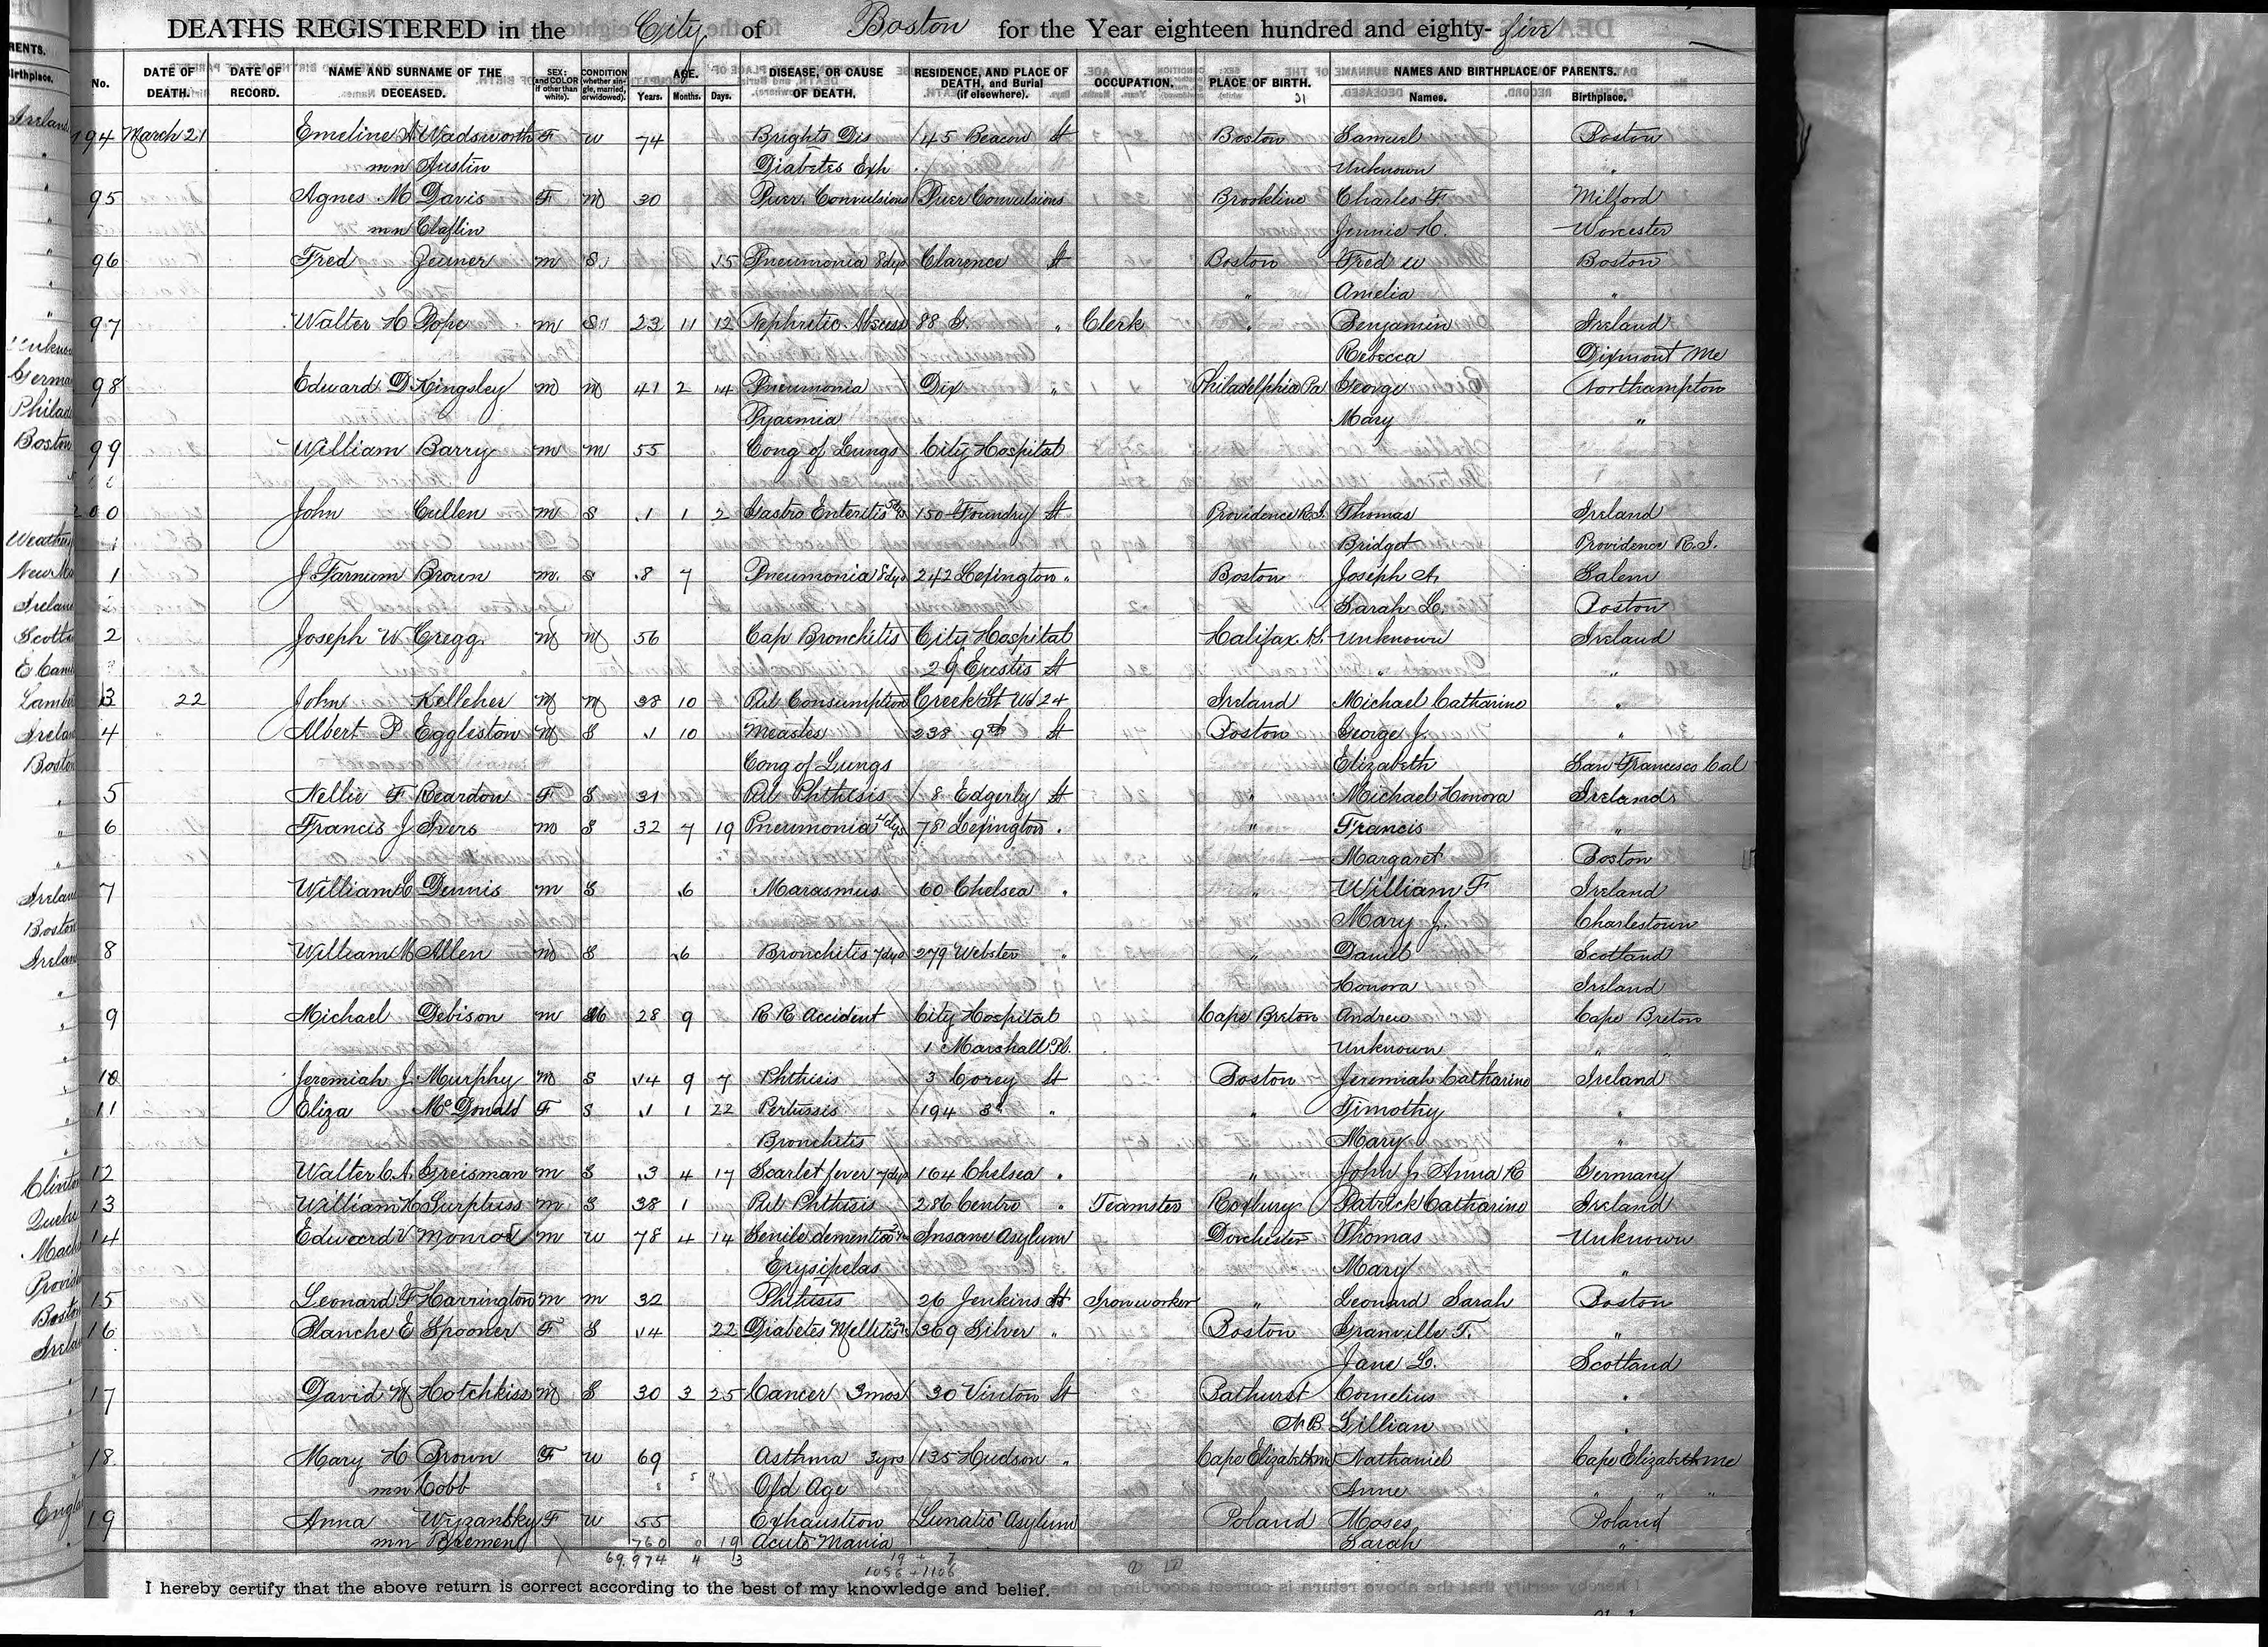 DEATHS REGISTERED in the City of Boston for the Year eighteen hundred and eighty- five
No. DATE OF DEATH. DATE OF RECORD. NAME AND SURNAME OF THE DECEASED. SEX: and COLOR if other than white). CONDITION (whether single, married, or widowed). AGE. Years. Months. Days. DISEASE, OR CAUSE OF DEATH. RESIDENCE, AND PLACE OF DEATH, and Burial (if elsewhere). OCCUPATION. PLACE OF BIRTH. NAMES AND BIRTHPLACE OF PARENTS. Names. Birthplace.
194 March 21 Emeline A Wadsworth F W 74 Brights Dis 45 Beacon St Boston Samuel Boston
mn Austin Diabetes Exh Unknown "
95 Agnes M Davis F M 30 Puer. Convulsions Puer Convulsions Brookline Charles F Milford
mn Claflin Jennie H. Worcester
96 Fred Zeuner m S 15 Pneumonia 8dys Clarence St Boston Fred W Boston
" Amelia "
97 Walter H Pope m S 23 11 12 Nephritic Abscess 88 G. " Clerk " Benjamin Ireland
Rebecca Dixmont Me
98 Edward D Kingsley m m 41 2 14 Pneumonia Dix " Philadelphia Pa George Northampton
Pyaemia Mary "
99 William Barry m m 55 Cong of Lungs City Hospital
200 John Cullen m S 1 1 2 Gastro Enteritis 150 Foundry St Providence R.I. Thomas Ireland
Bridget Providence R.I.
1 J Farnum Brown m. s 8 7 Pneumonia 8dys 242 Lexington " Boston Joseph A. Salem
Sarah L. Boston
2 Joseph W Gregg m m 56 Cap Bronchitis City Hospital Halifax Unknown Ireland
29 Eustis St " "
3 22 John Kelleher m m 38 10 Pul Consumption Creek St Wd 24 Ireland Michael Catharine "
4 Albert P Eggleston m S 1 10 Measles 238 9th St Boston George J. "
Cong of Lungs Elizabeth San Francesco Cal
5 Nellie F Reardon F S 31 Pul Phthisis 8 Edgerly St " Michael Honora Ireland
6 Francis J Ivers m S 32 7 19 Pneumonia 4dys 78 Lexington " " Francis "
Margaret Boston
7 William Dennis m S 6 Marasmus 60 Chelsea " " William F Ireland
Mary J. Charlestown
8 William M Allen m S 6 Bronchitis 7dys 279 Webster " " Daniel Scotland
Honora Ireland
9 Michael Debison m 28 9 R R Accident City Hospital Cape Breton Andrew Cape Breton
1 Marshall Pl. Unknown " "
10 Jeremiah J. Murphy m S 14 9 7 Phthisis 3 Corey St Boston Jeremiah Catharine Ireland
11 Eliza McDonald F S 1 1 22 Pertussis 194 3d " " Timothy "
Bronchitis Mary "
12 Walter C.A. Greisman m S 3 4 17 Scarlet fever 7dys 164 Chelsea " " John J. Anna R Germany
13 William H Surpluss m S 38 1 Pul Phthisis 286 Centre " Teamster Roxbury Patrick Catharine Ireland
14 Edward V Monroe m W 78 4 14 Senile dementia Insane Asylum Dorchester Thomas Unknown
Erysipelas Mary "
15 Leonard F Harrington m m 32 Phthisis 26 Jenkins St Ironworker " Leonard Sarah Boston
16 Blanche E Spooner F S 14 22 Diabetes Mellitis 369 Silver " Boston Granville T. "
Jane L. Scotland
17 David M Hotchkiss m S 30 3 25 Cancer 3mos 30 Vinton St Bathurst Cornelius "
N.B Lillian "
18 Mary H Brown F W 69 Asthma 3yrs 135 Hudson " Cape Elizabeth me Nathaniel Cape Elizabeth Me
mn Cobb Old Age Anne " " "
19 Anna Wyzansky F W 55 Exhaustion Lunatic Asylum Poland Moses Poland
mn Bremen Acute Mania Sarah "
760 0 19
69.974 4 3 19 + 7
1056 + 1106
I hereby certify that the above return is correct according to the best of my knowledge and belief.